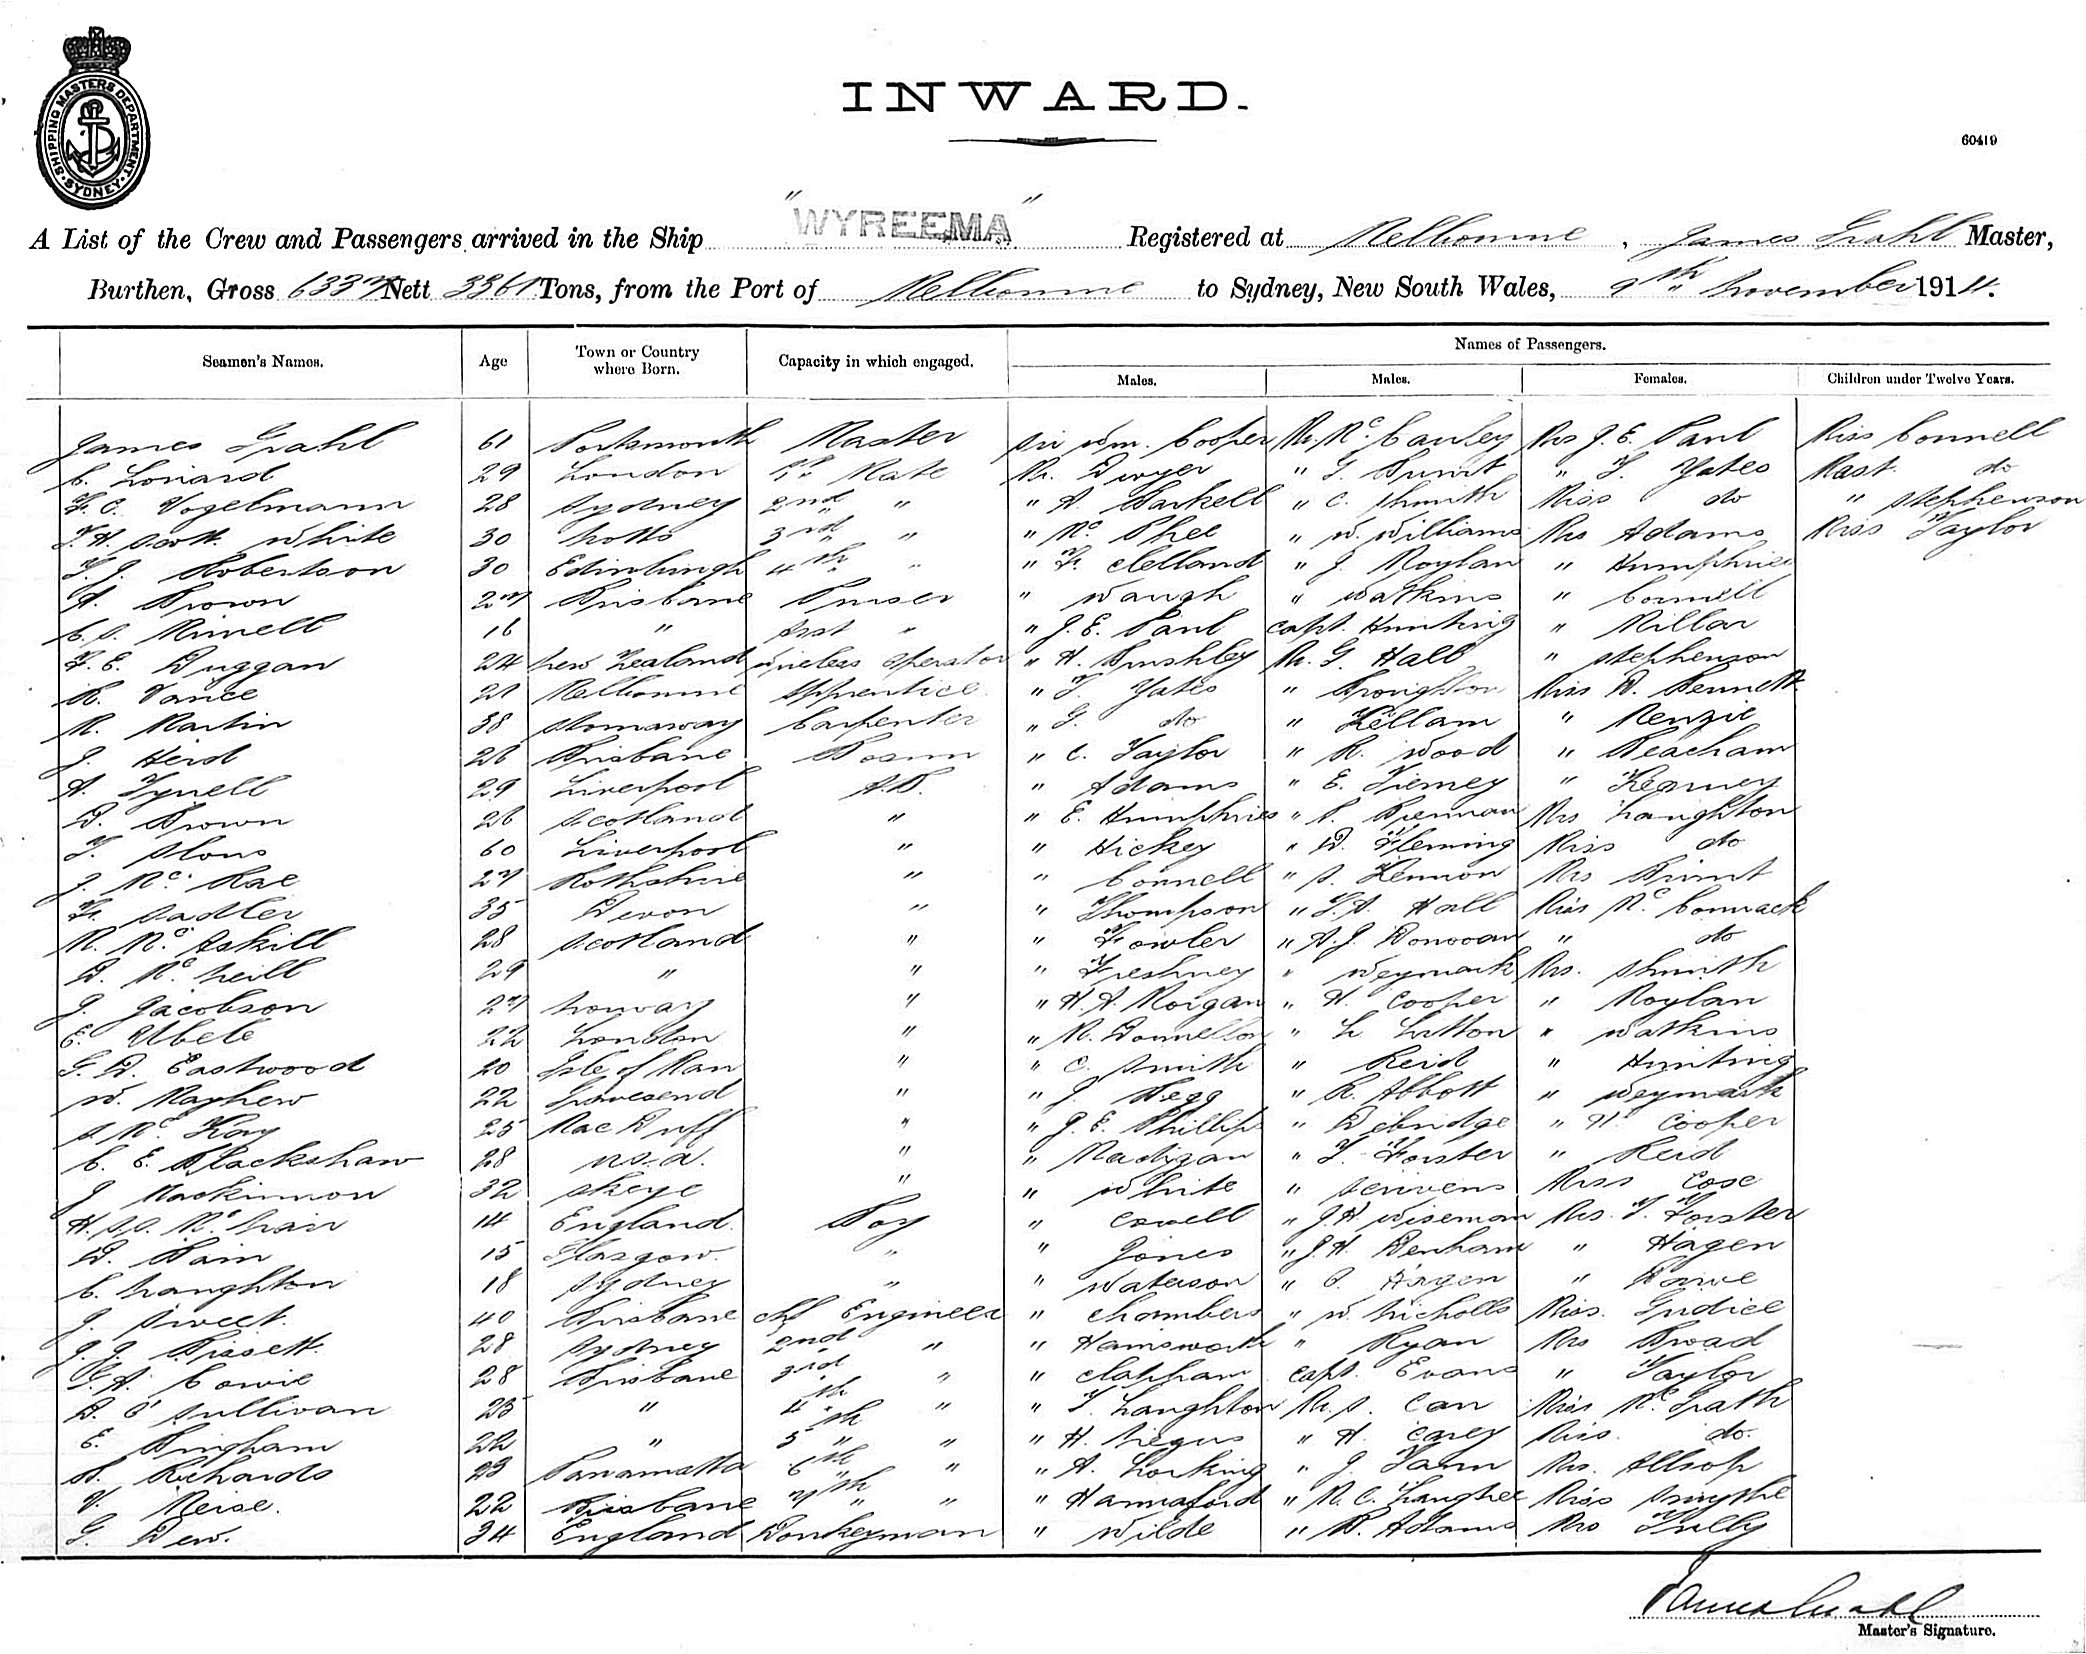 SHIPPING MASTERS DEPARTMENT. SYDNEY
INWARD.
60419
A List of the Crew and Passengers arrived in the Ship "WYREEMA" Registered at Melbourne, James Grahl Master,
Burthen, Gross 6337 Nett 3361 Tons, from the Port of Melbourne to Sydney, New South Wales, 9th November 1914.
Seamen's Names. Age Town or Country where Born. Capacity in which engaged. Names of Passengers.
Males. Males. Females. Children under Twelve Years.
James Grahl 61 Portsmouth Master Sir Wm. Cooper Mr Mc Cauley Mrs J. E. Paul Miss Connell
C. Loriard 29 London 1st Mate Mr. Dwyer " G. Brunt " T. Yates Mast. do
F. C. Vogelmann 28 Sydney 2nd " " A. " C. Shmith Miss do " Stephenson
T. H. Scott. White 30 Notts 3rd " " Mc Phee " W. Williams Mrs Adams Miss Taylor
T. J. Robertson 30 Edinburgh 4th " " F. Clelland " J. Moylan " Humphries
A. Brown 27 Brisbane Purser " Waugh " Watkins " Connell
C. S. Minnell 16 " Asst " " J. E. Paul Capt. Hunting " Millar
F. E. Duggan 24 New Zealand Wireless Operator " H. Brushley Mr. G. Hall " Stephenson
R. Vance 21 Melbourne Apprentice " T. Yates " Broughton Miss D. Bennett
M. Martin 38 Stornaway Carpenter " G. do " Kellam " Menzie
J. Herd 26 Brisbane Bosun " C. Taylor " R. Wood " Meacham
A. Tyrell 29 Liverpool A.B. " Adams " E. Tierney " Kearney
D. Brown 26 Scotland " " E. Humphries " P. Brennan Mrs Naughton
T. Sloss 60 Liverpool " " Hickey " D. Fleming Miss do
J. Mc. Rae 27 Rothshire " " Connell " S. Lennon Mrs Brunt
F. Sadler 35 Devon " " Thompson " T. S. Hall Miss Mc Cormack
M. Mc. Askill 28 Scotland " " Fowler " A. J. Donovan " do
D. Mc. Neill 29 " " " Freshney " Weymark Mrs. Shmith
J. Jacobson 27 Norway " " H. A. Morgan " H. Cooper " Moylan
E. Ubele 22 London " " M. Donnellon " L Litton " Watkins
G. D. Eastwood 20 Isle of Man " " C. Smith " Reid " Hunting
W. Mayhew 22 Gravesend " " J. Begg " R. Abbott " Weymark
S Mc Kay 25 Mac Duff " " J. E. Phillips " Debridge " H. Cooper
C. E. Blackshaw 28 " " Madigan " T. Forster " Reid
J Mackinnon 32 Skeye " " White " Scrivens Miss Case
H. S. S. Mc Nair 14 England. Boy " Cowell " J. H. Wiseman Mrs. T. Forster
D. Bain 15 Glasgow. " " Jones " J. H. Denham " Hagen
C. Naughton 18 Sydney " " Waterson " S. Hagen " Rowe
J. Sweet. 40 Brisbane Chf Engineer " Chambers " W. Nicholls Miss.
J. J. Bissett. 28 Sydney 2nd " " Hainsworth " Ryan Mrs Broad
G. A. Cowie 28 Brisbane 3rd " " Clapham Capt. Evans " Taylor
D. O'Sullivan 25 " 4th " " T. Naughton Mr. S. Carr Miss Mc. Grath
E. Bingham 22 " 5th " " H. Negus " H. Carey Miss. do.
A. Richards 23 Parramatta 6th " " A. Larking " J. Fann Mrs. Allsop
V. Meise. 22 Brisbane 7th " " Hannaford " M. C. Langhee Miss Smythe
G. Dew. 34 England Donkeyman " Wilde " B. Adams Mrs Tully
James Grahl
Master's Signature.